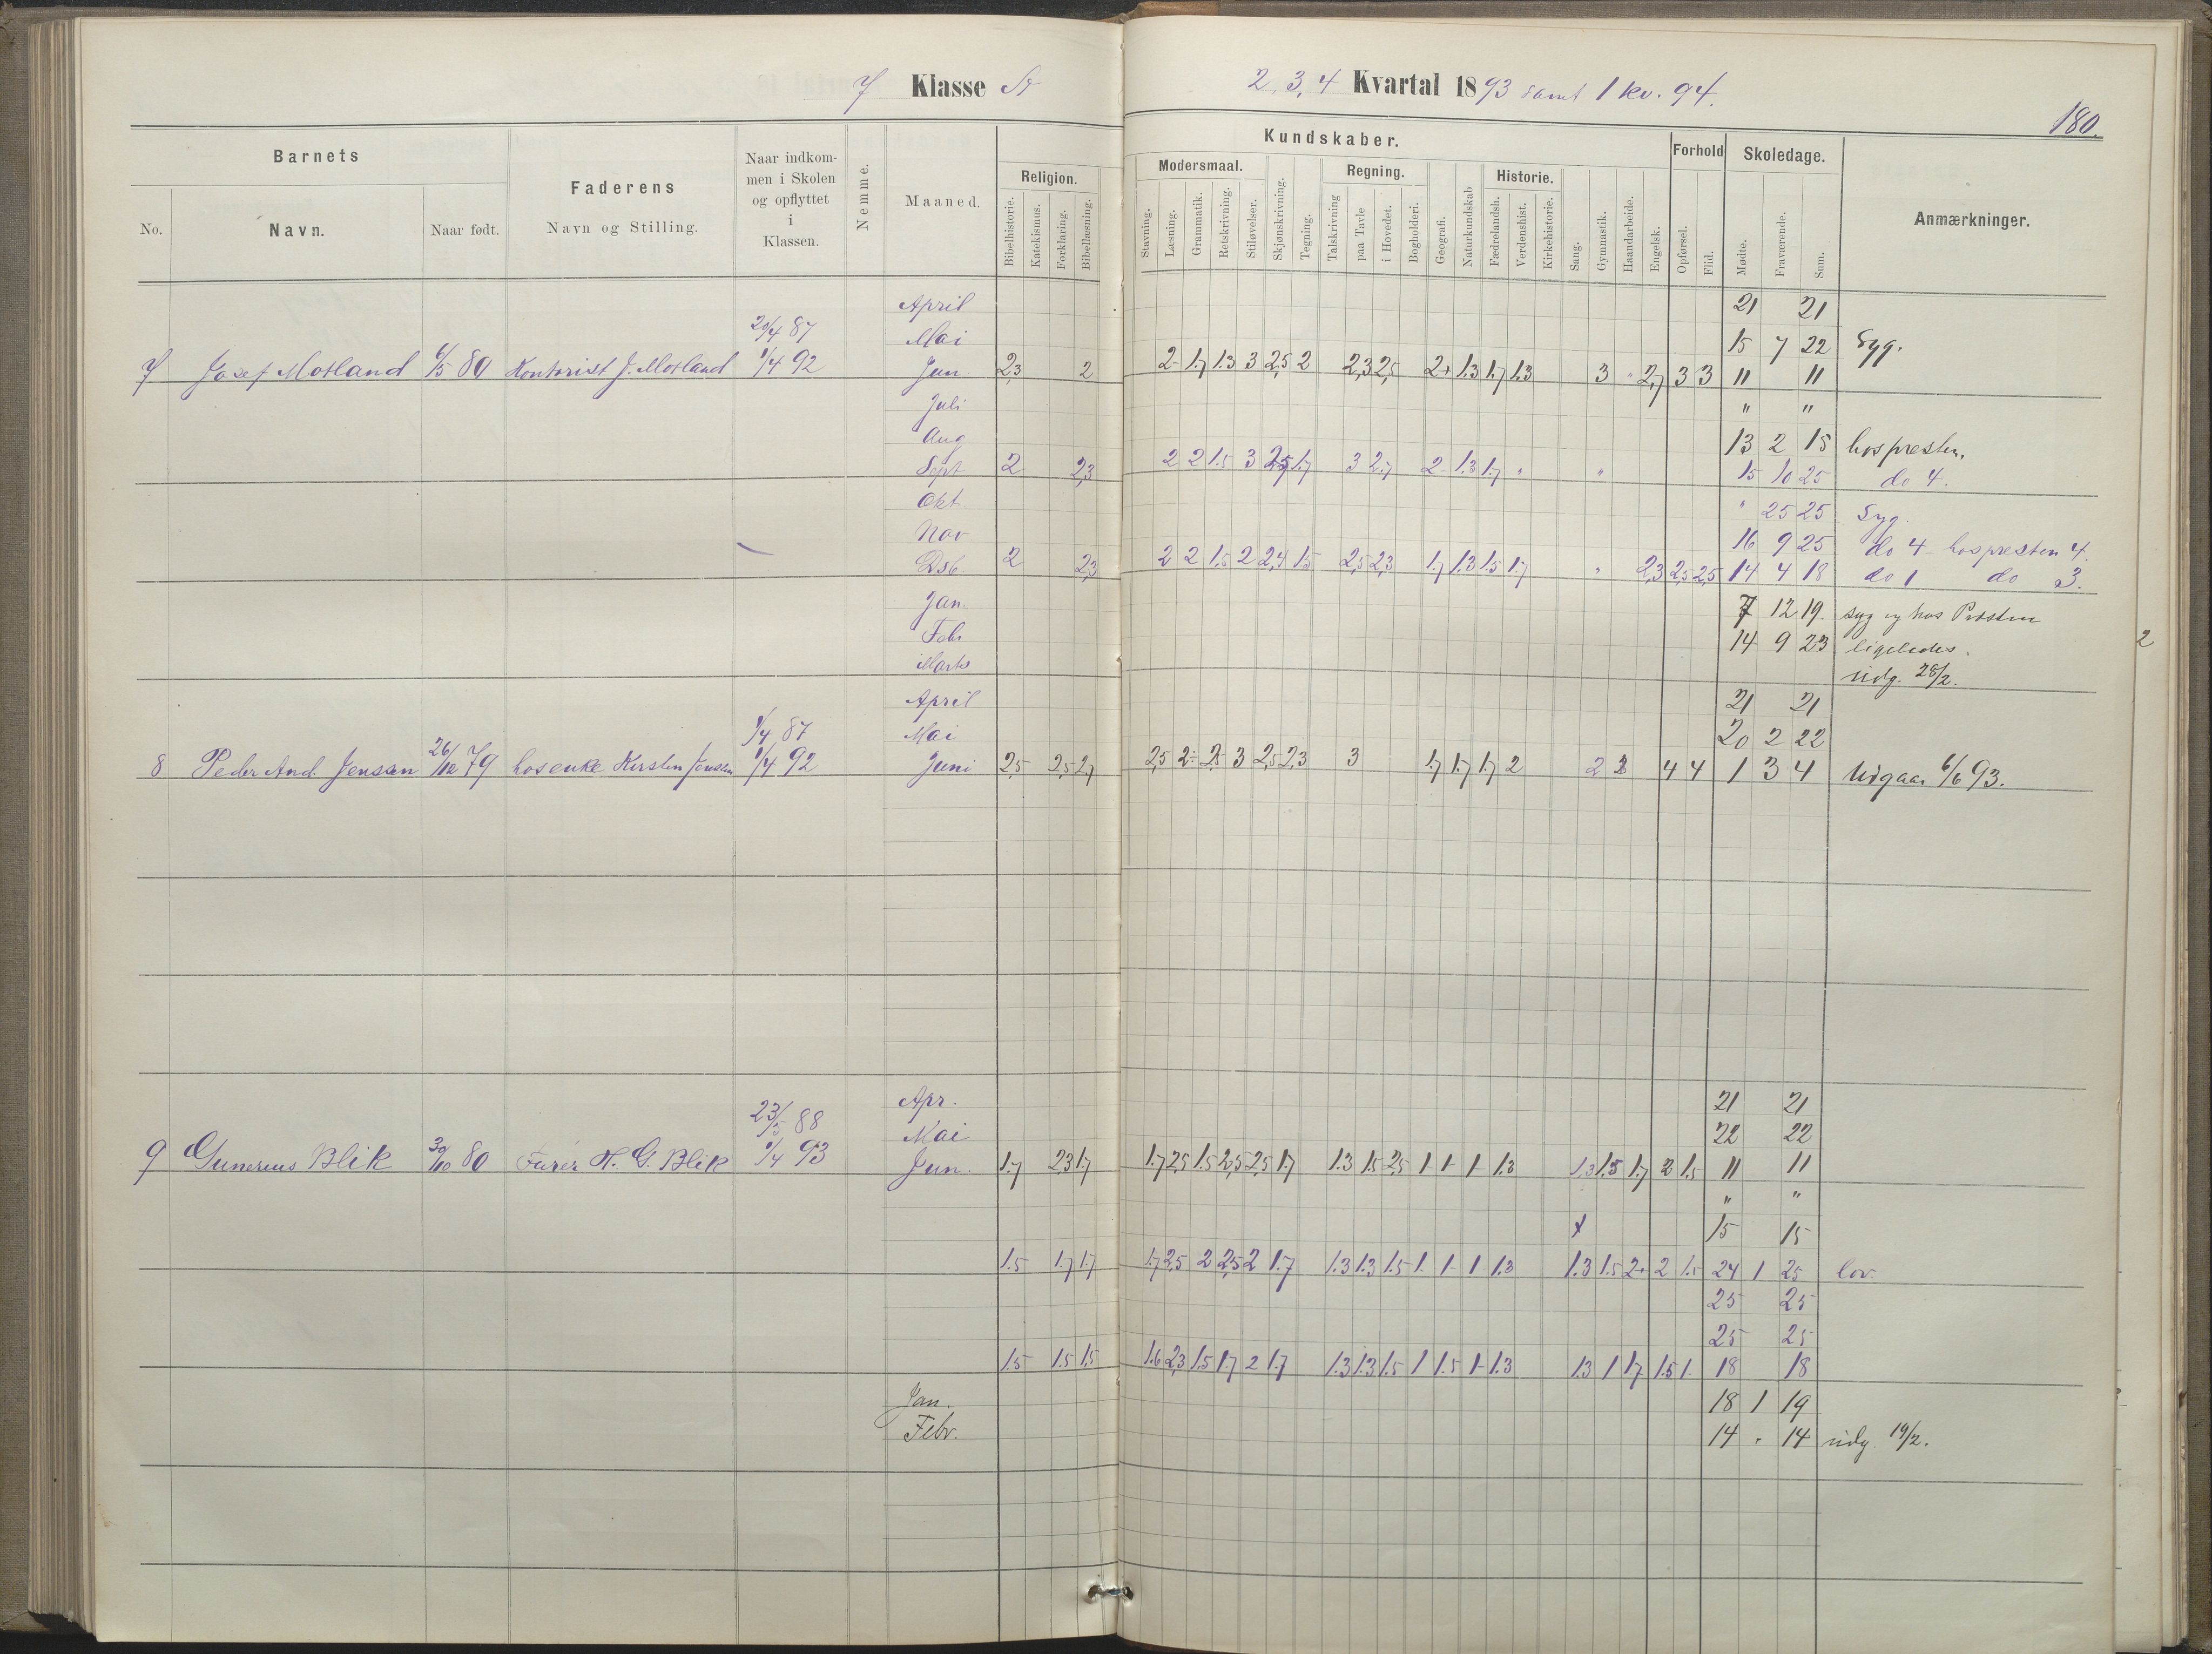 7 Klasse A
2, 3, 4 Kvartal 1893 samt 1 kv. 94.
180.
Barnets
Faderens
Naar indkommen i Skolen og opflyttet i Klassen.
Nemme.
Maaned.
Religion.
Kundskaber.
Modersmaal.
Regning.
Historie.
Forhold
Skoledage.
Anmærkninger.
No. Navn. Naar født. Navn og Stilling.
Bibelhistorie. Katekismus. Forklaring. Bibellæsning. Stavning. Læsning. Grammatik. Retskrivning. Stiløvelser. Skjønskrivning. Tegning. Talskrivning paa Tavle i Hovedet. Bogholderi. Geografi. Naturkundskab Fædrelandsh. Verdenshist. Kirkehistorie. Sang. Gymnastik. Haandarbeide. Engelsk. Opførsel. Flid. Møde. Fraværende. Sum.
April 21 21
20/4 87 Mai 15 7 22 Syg.
7 Josef Motland 6/5 80 Kontorist J. Motland 1/4 92 Jun. 2,3 2 2- 1.7 1.3 3 2,5 2 2,3 2,5 2+ 1.3 1.7 1.3 3 " 2,7 3 3 11 11
Juli " "
Aug 13 2 15 hos presten.
Sept 2 2,3 2 2 1.5 3 2,5 1.7 3 2.7 2 1.3 1.7 " " 15 10 25 do 4.
Okt " 25 25 Syg.
Nov 16 9 25 do 4 hos presten 4.
Dsb. 2 2,3 2 2 1.5 2 2,4 1.5 2,5 2,3 1.7 1.3 1.5 1.7 " 2,3 2,5 2,5 14 4 18 do 1 do 3.
Jan. 7 12 19. syg og hos Presten
Febr 14 9 23 ligeledes.
Marts udg. 28/2.
2
April 21 21
1/4 87 Mai 20 2 22
8 Peder And. Jensen 26/12 79 hos enke Kirsten Jensen 1/4 92 Juni 2,5 2,5 2,7 2,5 2- 2,5 3 2,5 2,3 3 1.7 1.7 1.7 2 2 2 4 4 1 3 4 Udgaar 6/6 93.
Apr. 21 21
23/5 88 Mai 22 22
9 Gunerius Blik 30/10 80 Furér H. G. Blik 1/4 93 Jun. 1.7 2,3 1.7 1.7 2,5 1.5 2,5 2,5 1.7 1.3 1.5 2,5 1- 1- 1- 1.3 1.3 1.5 1.7 2 1.5 11 11
" "
15 15
1.5 1.7 1.7 1.7 2,5 2 2,5 2 1.7 1.3 1.3 1.5 1. 1- 1 1.3 1.3 1.5 2+ 2 1.5 24 1 25 lov
25 25
25 25
1.5 1.5 1.5 1.6 2,3 1.5 1.7 2 1.7 1.3 1.3 1.5 1 1.5 1- 1.3 1.3 1 1.7 1.5 1. 18 18
Jan. 18 1 19
Febr. 14 . 14 udg. 19/2.